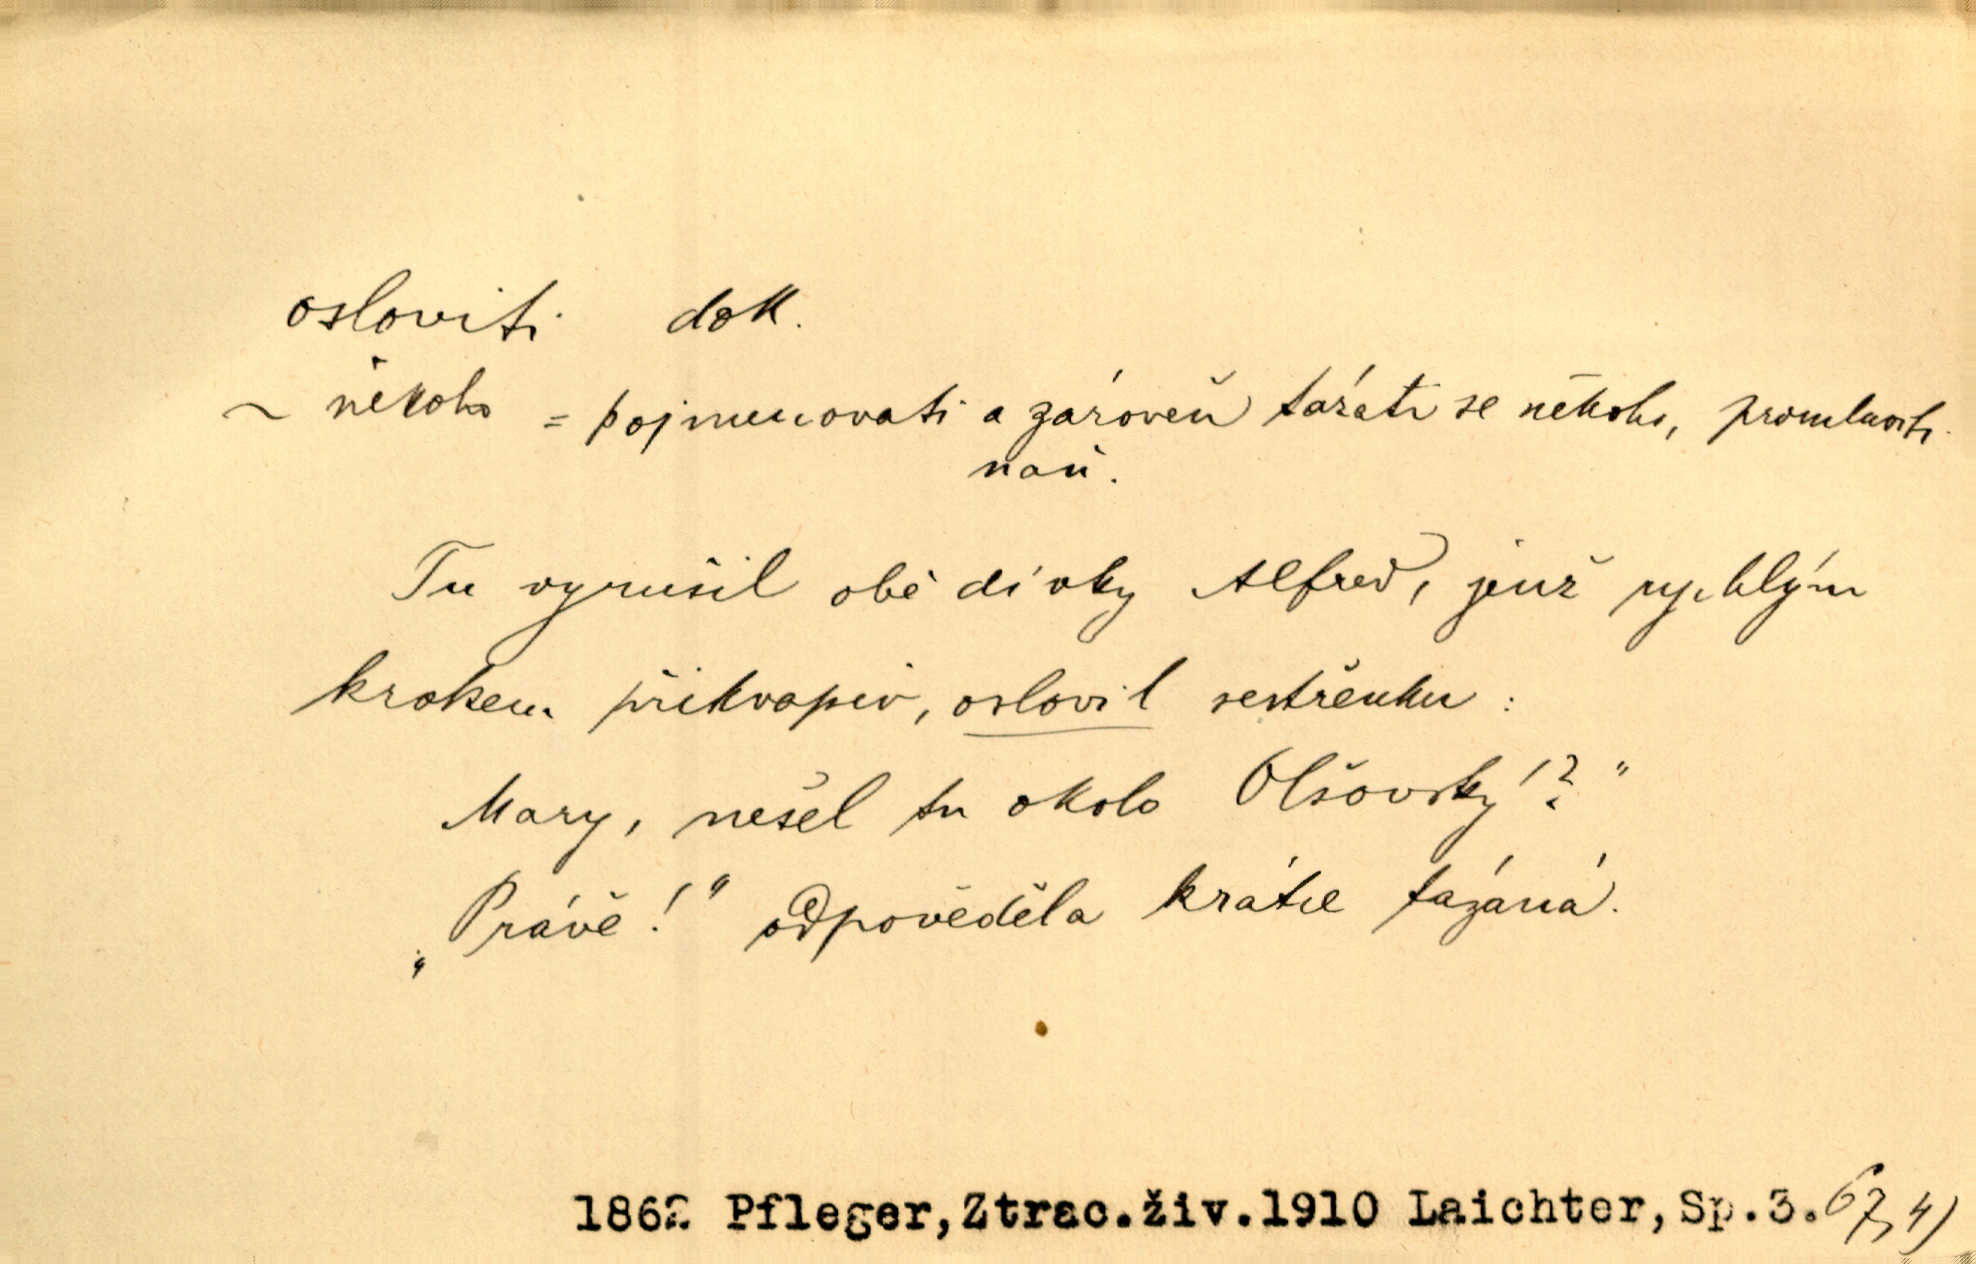 osloviti dok.
~ někoho = pojmenovati a zároveň tázati se někoho, promluviti
naň.
Tu vyrušil obě dívky Alfred, jenž rychlým
krokem přikvapiv, oslovil sestřenku :
Mary, nešel tu okolo Olšovský?"
„Právě!" odpověděla krátce tázaná.
1862 Pfleger,Ztrac.živ.1910 Laichter,Sp.3.67,4)